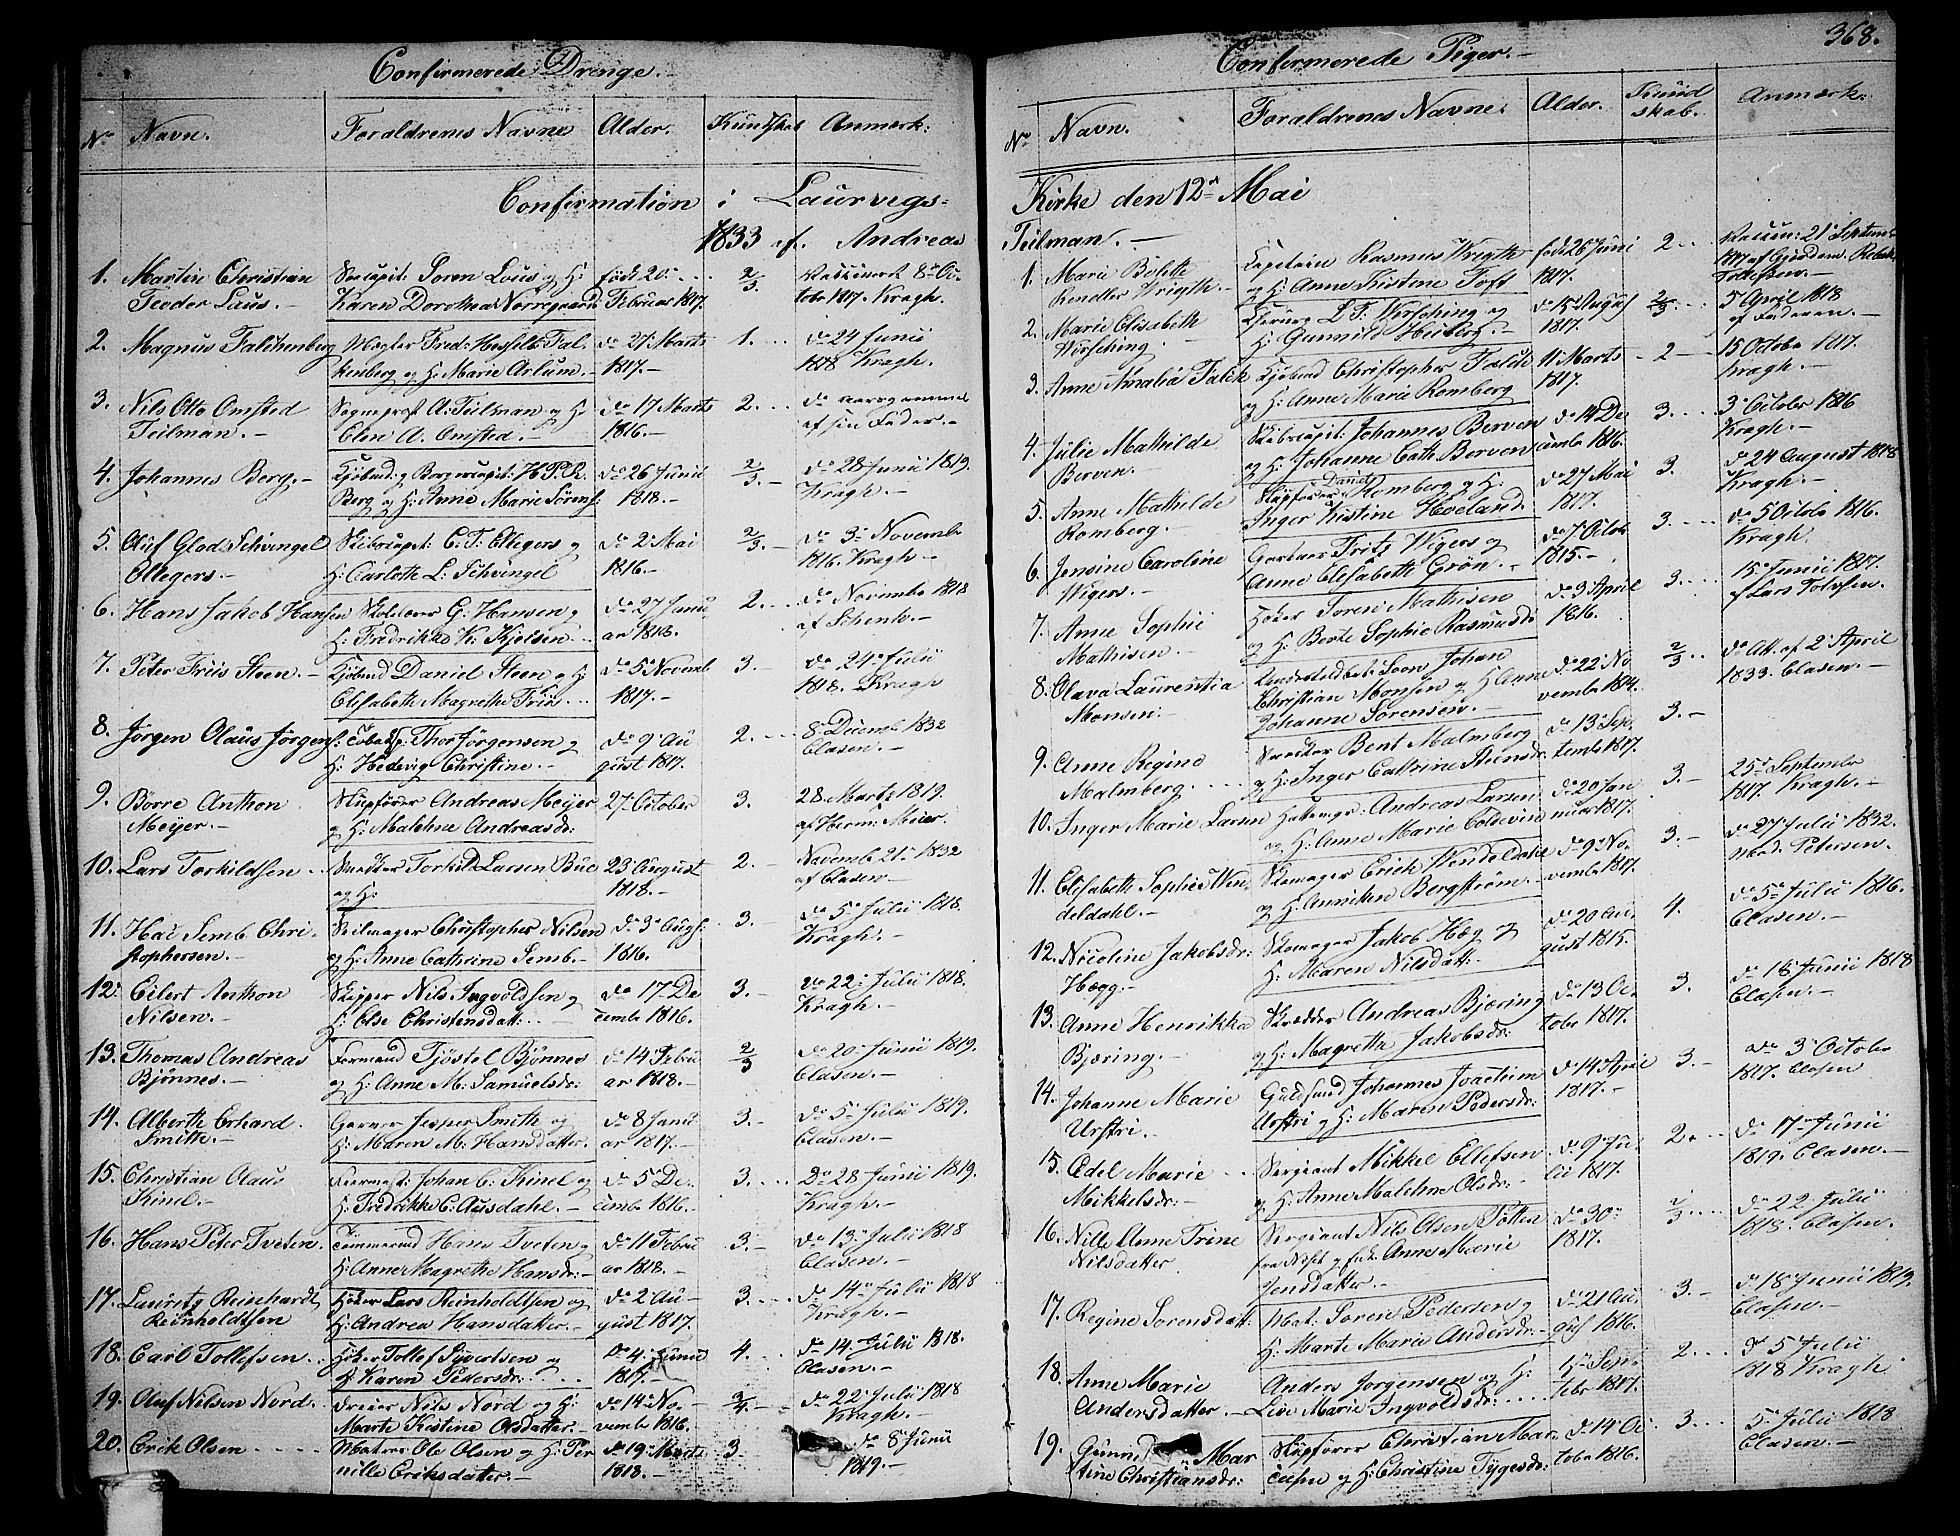 Confirmerede Drenge.
No Navn. Foraldrenes Navne Alder. Kundskab Anmærk:
Confirmation i Laurvigs-
1833 af Andreas
1. Martin Christian Sørcapit: Soren Lous og H: født 20 2/3 Vaccineret 8de Oc
Feeder Luus. Karen Dorothea Norregaard Februar 1817. tobr 1817. Kragh.
2. Magnus Falchenberg Mægler Fred: Hesselb: Fal do 27 Marts 1. do 24 Junii
kenberg og H: Marie Arlum. 1817. 1818 Kragh.
3. Nils Otto Omsted Sognepræst A: Teilman og H: do 17 Marts 2. do
Teilman. Elen A. Omsted. 1816. af sin Fader.
4. Johannes Berg. Kjøbmd: og Borgercapit: H. P. R. do 26 Junii 2/3 do 28 Junii 1819.
Berg og H: Anne Marie Sörens 1818. Kragh.
5. Oluf Glod Schvingel Skibscapit: C. T: Ellegers og do 2 Mai 2/3. do 3 Novembr
Ellegers. H: Carlotte L: Schvingel 1816. 1816. Kragh
6. Hans Jakob Hansen G: Hansen og do 27 Janu 2. do Novembr 1818
H: Fredrikke K: Kjelsen ar 1818. af Schenk.
7. Peter Friis Steen. Kjøbmd Daniel Steen og H: do 5 Novemb 3. do 24 Julii
Elisabeth Magrethe Friis 1817. 1818. Kragh
8. Jørgen Olaus Jørgens: Tobaksp: Thor Jörgensen og do 9 Au 2. 8 Decemb 1832
H: Hedevig Christine. gust 1817. Clasen.
9. Børre Anthon Skipfører Andreas Meyer 27 October 3. 28 Marts 1819.
Meyer. og H: Malehne Andreasdr: af Herm: Meier.
10. Lars Torkildsen Snedker Torkild Larsen Bue 23 August 2. Novemb 21 1832
og H: 1818. af Clasen
11. Hai Semb Chri Seilmager Christopher Nilsen do 3 Augs: 3. do 5 Julii 1818.
stophersen. og H: Anne Cathrine Semb. 1816. Kragh.
12. Eilert Anthon Skipper Nils Ingvoldsen og do 17 De 3. do 22 Julii 1818.
Nilsen. H: Else Christensdatt: cembr 1816. Kragh
13. Thomas Andreas Formand Tjöstel Bjønnes do 14 Febru 2/3 do 20 Junii 1819.
Bjønnes. og H: Anne M: Samuelsdr: ar 1818. Clasen.
14. Alberth Erhard Garver Jesper Smith og do 8 Janu 3. do 5 Julii 1819.
Smith. H: Maren M: Hansdatter. ar 1817. Clasen.
15. Christian Olaus Johan C: Kinel og do 5 De 3. Do 28 Junii 1819.
Kinel. H: Fredrikke C: Ausdahl. cembr 1816. Kragh.
16. Hans Peter Tveten. Tømmermd Hans Tveten og do 11 Febru 3. do 13 Julii 1818
H: Anne Magrethe Hansdr: ar 1818. Clasen.
17. Laurits Reinhardt Høker Lars Reinholdtsen og do 2 Au 3. do 14 Julii 1818
Reinholdtsen H: Andrea Hansdatter. gust 1817. Kragh.
18. Carl Tollefsen. Høker Tollef Syvertsen og do 4 Junii 4. do 14 Julii 1818.
H: Karen Pedersdr: 1817. Clasen.
19. Oluf Nilsen Nord. Dreier Nils Nord og H: do 14 No 3/4 do 22 Julii 1818
Marte Kistine Olsdatter vembr 1816. Kragh.
20. Erik Olsen Matros Ole Olsen og H: Per do 19 Marts 3. do 8 Junii
nille Eriksdatter. 1818. 1819.
368.
Confirmerede Piger.
No Navn. Foraldrenes Navne. Alder. Kundskab. Anmærk:
Kirke den 12te Mai
Teilman.
1. Marie Bolette Capitein Rasmus Wrigth født 26 Juni 2 Vaccin: 21 Septemb
Sendler Wrigth. og H: Anne Kistine Toft 1817. 1817 af
2. Marie Elisabeth Chirurg L. F: Wirsching og do 15 August 2/3 5 April 1818
Wirsching. H: Gunnild Heiberg. 1817. af Faderen.
3. Anne Amalia Falck Kjøbmd Christopher Falck 11 Marts 2 15 Octobr 1817.
og H: Anne Marie Romberg 1817. Kragh.
4. Julie Mathilde Skibscapit: Johannes Berven do 14 De 3. 3 Octobr 1816
Berven. og H: Johanne Cath: Berven cembr 1816. Kragh.
5. Anne Mathilde Skipfører Daniel Romberg og H: do 27 Mai 3. do 24 August 1818
Romberg. Inger Kistine Hoeland 1817. Kragh.
6. Jensine Caroline Gartner Fritz Wigers og do 7 Octob 3. do 5 Octobr 1816.
Wigers. Anne Elisabeth Grön. 1815. Kragh.
7. Anne Sophie Høker Soren Mathisen do 3 April 3. 15 Junii 1817.
Mathisen. og H: Berte Sophie Rasmusd: 1816. af Lars Tolefsen.
8. Olava Laurentia Johan do 22 No 2/3 do Att. af 2 April
Monsen. Christian Monsen og H: Anne vembr 1814. 1833. Clasen
Johanne Sorensen.
9. Anne Regine Snedker Bent Malmberg do 13 Sep 3.
Malmberg. og H: Inger Cathrine Steensdr tembr 1817.
10. Inger Marie Larsen Andreas Larsen do 20 Jan 3. 25 Septembr
og H: Anne Marie Coldevin nuar 1817. 1817. Kragh.
11. Elisabeth Sophie Wen Skomager Erick Wendeldahl do 9 No 3. do 27 Julii 1832.
deldahl. og H: Anniken Bergstrøm. vembr 1817. Petersen.
12. Nicoline Jakobsdr: Skomager Jakob Høg og do 20 Au 4. do 5 Julii 1816.
Høgg. H: Maren Nilsdatt: gust 1815. Clasen.
13. Anne Henrikka Skrædder Andreas Bjæring do 13 Oc 3. do 18 Junii 1818
Bjæring. og H: Magrethe Jakobsdr: tobr 1817. Clasen.
14. Johanne Marie Guldsmd Johannes Joachim do 14 April 3. do 3 Octobr
Urstri. Urstri og H: Maren Pedersdr: 1817. 1817. Clasen
15. Edel Marie Sergiant Mikkel Ellefsen do 9 Ju 2. do 17 Junii
Mikkelsdr: og H: Anne Malehne Olsdr: lii 1817. 1819. Clasen.
16. Nille Anne Trine Sergiant Nils Olsen Totten do 30 2/3 do 22 Julii
Nilsdatter fra Næset og H: Anne Marie 1817. 1818. Clasen.
Jensdatter.
17. Regine Sorensdatt: Mat: Soren Pedersen og do 21 Au 3. do 18 Junii 1819.
H: Marte Marie Andersdr: gust 1816. Clasen.
18. Anne Marie Anders Jorgensen og H: 1 Sep 2. do 5 Julii
Andersdatter. Live Marie Ingvoldsdr: tebr 1817. 1818 Kragh.
19. Gunnild Mar Skipfører Christian Mar do 14 Oc 3. 5 Julii 1818
tine Christiansdr: cusen og H: Christine Tygesdr: tobr 1816. Clasen.